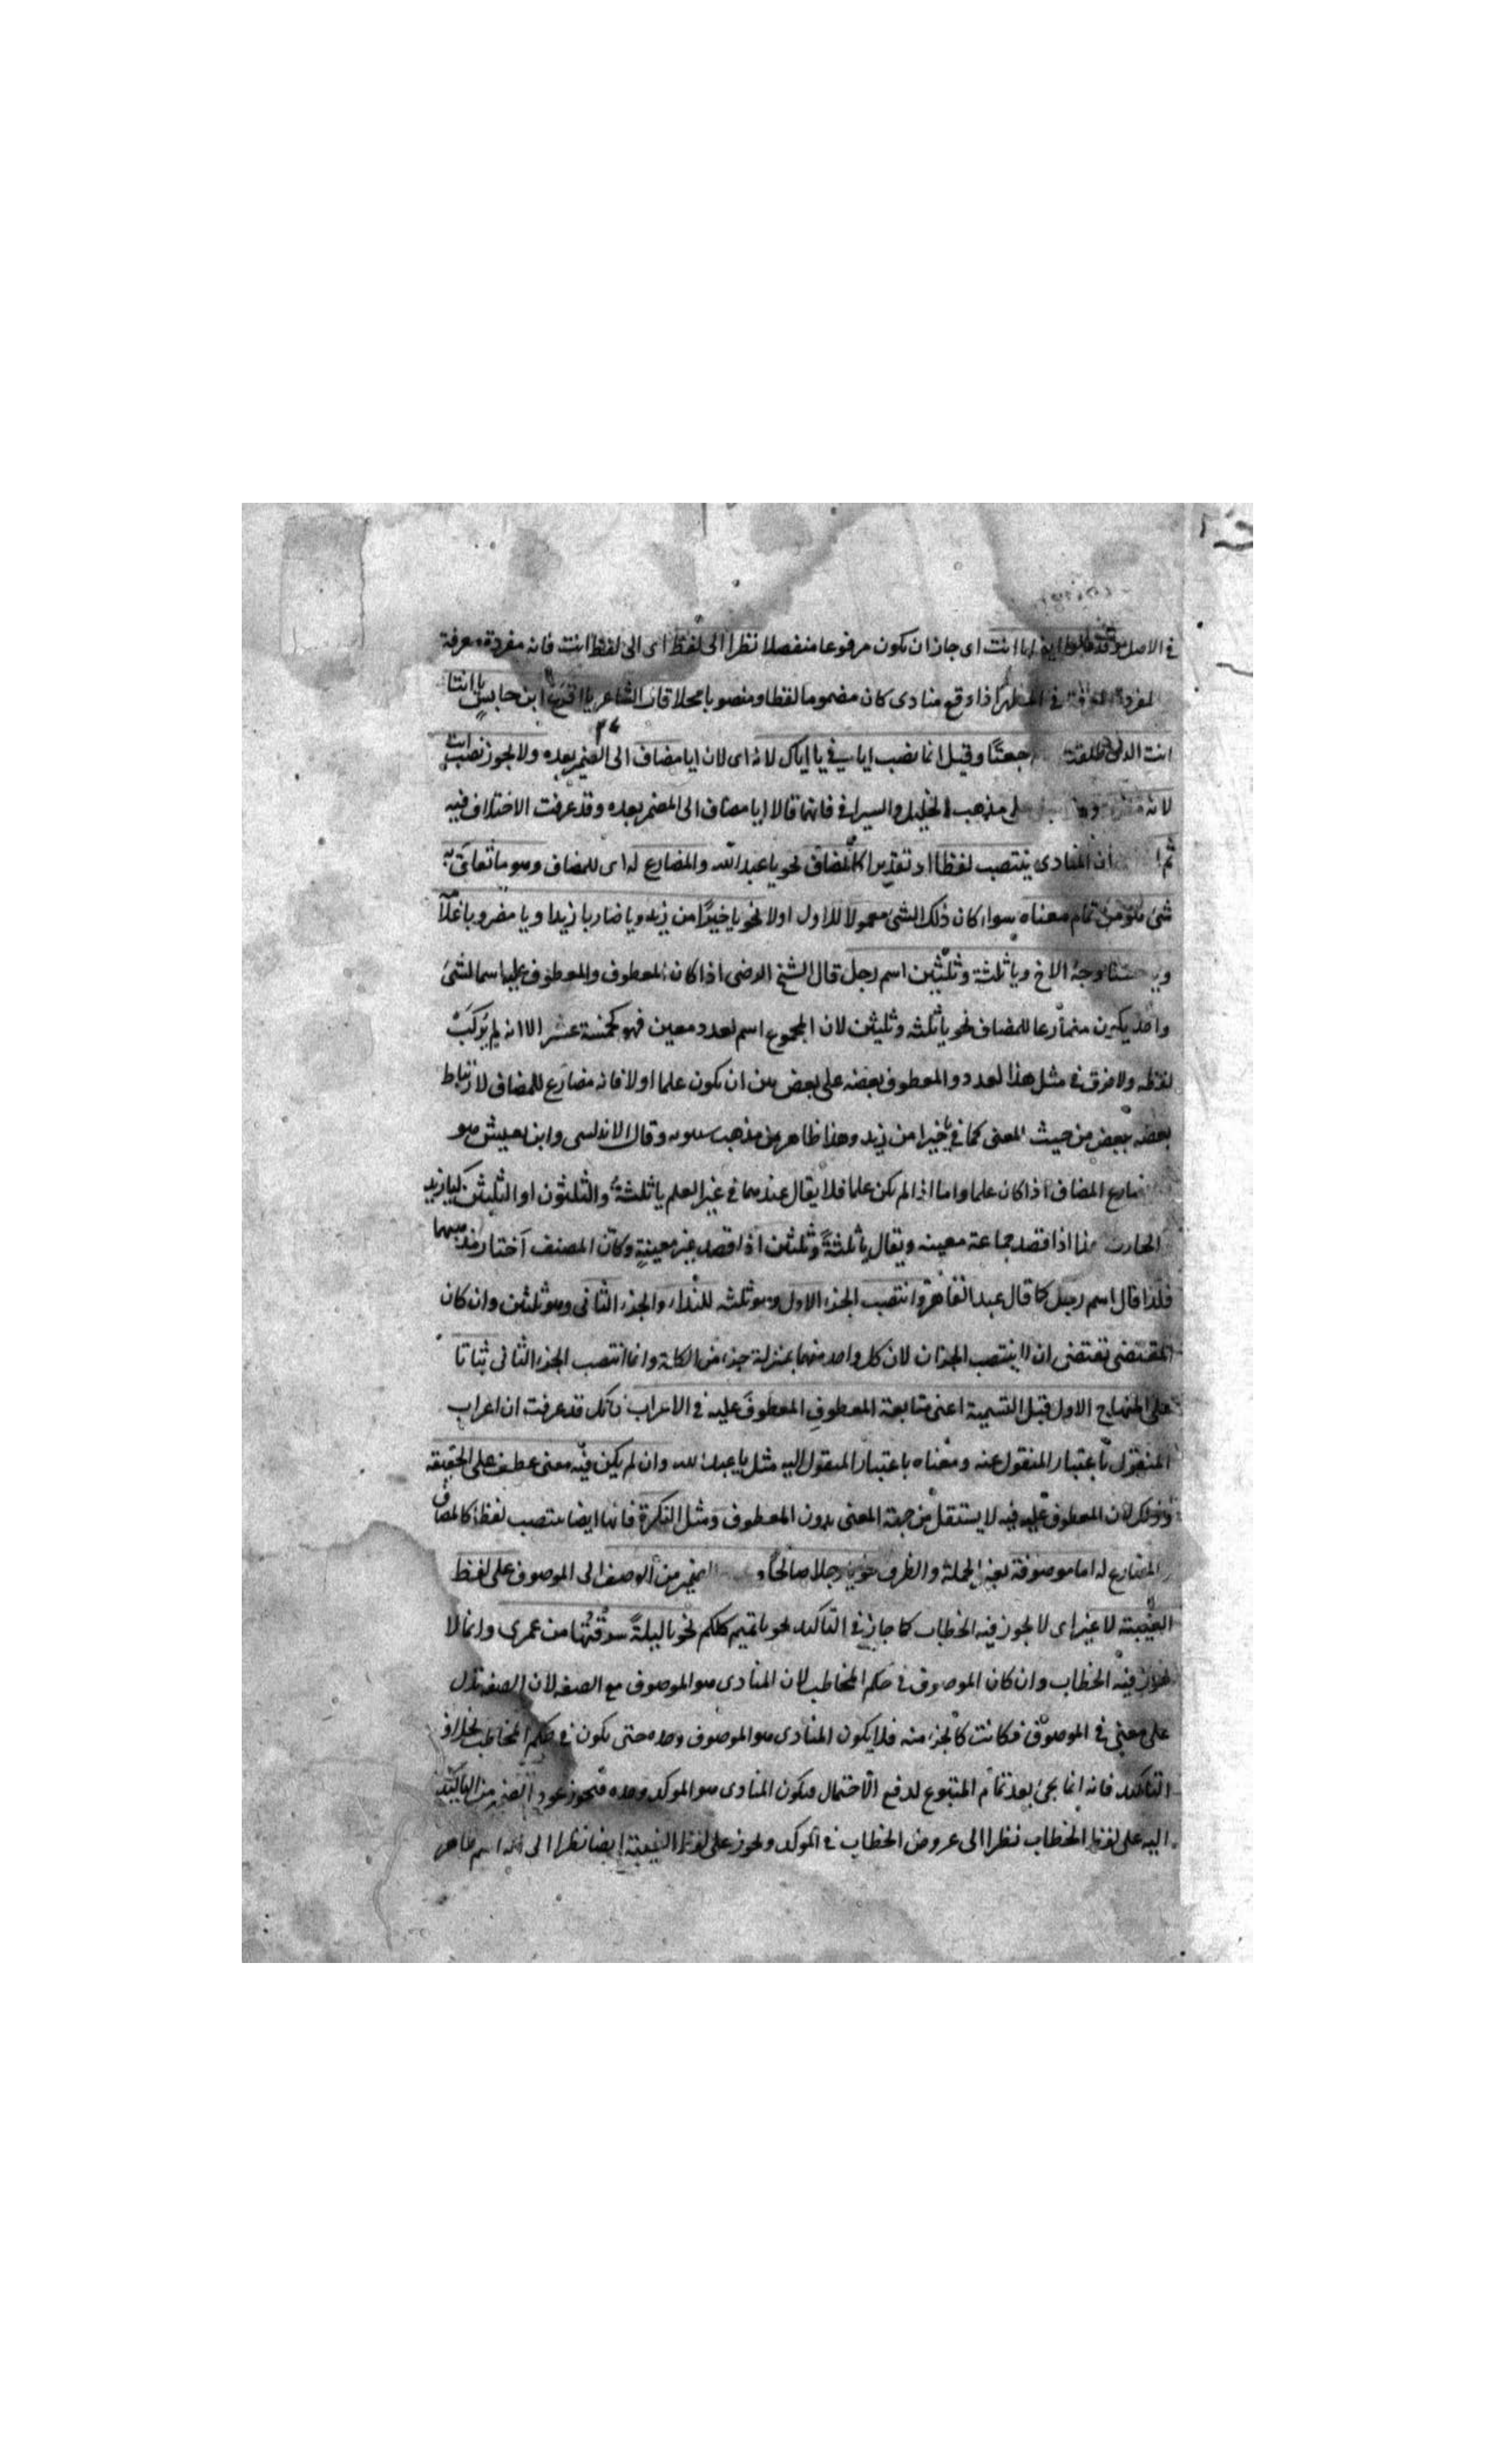 في الاصل وقد قالوا ايضا يا انت اى جاز ان يكون مرفوعا منفصلا نظرا الى لفظ اى الى لفظ انت فانه مفرد معرفة
المفرد المعرفة في المظهر اذا وقع منادى كان مضموما لفظا ومنصوبا محلا قال الشاعر يا اقرع ابن حابس يا انتا
انت الذى طلقت جعتا وقيل انما نصب اياك في يا اياك لانه اى لان ايا مضاف الى الضمير بعده ولا يجوز نصب انت
لانه على مذهب الخليل والسيرافى فانهما قالا ايا مضاف الى المضمر بعده وقد عرفت الاختلاف فيه
ثم ان المنادى ينتصب لفظا او تقديرا كالمضاف نحو يا عبد الله والمضارع له اى للمضاف وهو ما تعلق به
شئ هو من تمام معناه سواء كان ذلك الشئ معمولا للاول اولا نحو يا خيرا من زيد ويا ضاربا زيدا ويا مضروبا غلامه
ويا حسنا وجه الاخ ويا ثلثة وثلثين اسم رجل قال الشيخ الرضى اذا كان المعطوف والمعطوف عليه اسما لشئ
واحد يكون مضارعا للمضاف نحو يا ثلثة وثلثين لان المجموع اسم لعدد معين فهو كخمسة عشر الا انه لم يركب
لفظه ولا فرق في مثل هذا العدد والمعطوف بعضه على بعض بين ان يكون علما اولا فانه مضارع للمضاف لارتباط
بعضه ببعض من حيث المعنى كما في يا خيرا من زيد وهذا ظاهر من مذهب سيبويه وقال الاندلسى وابن يعيش هو
مضارع المضاف اذا كان علما واما اذا لم يكن علما فلا يقال عندهما في غير العلم يا ثلثة والثلثون او الثلثين كيا زيد
الحارث هذا اذا قصد جماعة معينه ويقال يا ثلثة وثلثين اذا قصد غير معينة وكان المصنف اختار مذهبهما
فلذا قال اسم رجل كما قال عبد القاهر وانتصب الجزء الاول وهو ثلثه للنداء والجزء الثانى وهو ثلثين وان كان
المقتضى تقتضى ان لا ينتصب الجزان لان كل واحد منهما بمنزلة جزء من الكلمة وانما انتصب الجزء الثانى ثباتا
على المنهاج الاول قبل التسمية اعنى متابعة المعطوف المعطوف عليه في الاعراب فانك قد عرفت ان اعراب
المنقول باعتبار المنقول عنه ومعناه باعتبار المنقول اليه مثل يا عبد الله وان لم يكن فيه معنى عطف على الحقيقة
وذلك لان المعطوف عليه فيه لا يستقل من جهة المعنى بدون المعطوف ومثل النكرة فانها ايضا ينتصب لفظا كالمضاف
والمضارع له اما موصوفة بغير الجملة والظرف نحو يا رجلا صالحا و الضمير من الوصف الى الموصوف على لفظ
الغيبة لا غير اى لا يجوز فيه الخطاب كما جاز في التاكيد نحو يا تميم كلكم نحو يا ليلة سرقتها من عمرى وانما لا
يجوز فيه الخطاب وان كان الموصوف في حكم المخاطب لان المنادى هو الموصوف مع الصفه لان الصفه تدل
على معنى في الموصوف فكانت كالجزء منه فلا يكون المنادى هو الموصوف وحده حتى يكون في حكم المخاطب بخلاف
التاكيد فانه انما يجئ بعد تمام المتبوع لدفع الاحتمال فيكون المنادى هو الموكد وحده فيجوز عود الضمير من التاكيد
اليه على لفظ الخطاب نظرا الى عروض الخطاب في الموكد ويجوز على لفظ الغيبة ايضا نظرا الى انه اسم ظاهر